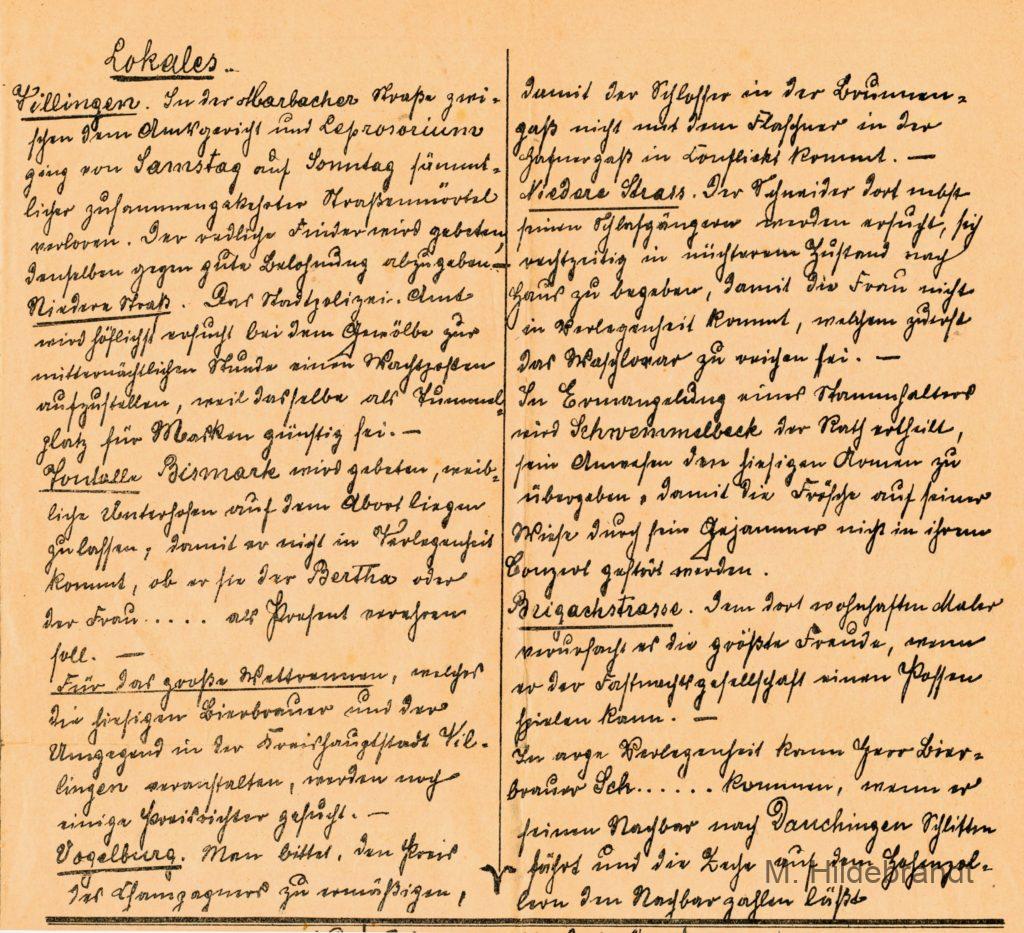 Lokales.
Villingen. In der Marbacher Straße zwi-
schen dem Amtsgericht und Leprosorium
ging von Samstag auf Sonntag sämmt-
licher zusammengekehrter Straßenmörtel
verloren. Der redliche Finder wird gebeten,
denselben gegen gute Belohnung abzugeben. —
Niedere Straß. Das Stadtpolizei-Amt
wird höflichst ersucht bei dem Gewölbe zur
mitternächtlichen Stunde einen Wachtposten
aufzustellen, weil dasselbe als Tummel-
platz für Masken günstig sei. —
Bismark wird gebeten, weib-
liche Unterhosen auf dem Abort liegen
zu lassen, damit er nicht in Verlegenheit
kommt, ob er sie der Bertha oder
der Frau ..... als Present verehren
soll. —
Für das große Wettrennen, welches
die hiesigen Bierbrauer und der
Umgegend in der Kreishauptstadt Vil-
lingen veranstalten, werden noch
einige Preisrichter gesucht. —
Vogelburg. Man bittet, den Preis
des Champagners zu ermäßigen,
damit der Schlosser in der Brunnen-
gaß nicht mit dem Flaschner in der
Hafnergaß in Conflickt kommt. —
Niedere Strass. Der Schneider dort nebst
seinen Schlafgängern werden ersucht, sich
rechtzeitig in nüchterem Zustand nach
Haus zu begeben, damit die Frau nicht
in Verlegenheit kommt, welchem zuerst
das zu reichen sei. —
In Ermangelung eines Stammhalters
wird Schwemmelbeck der Rath ertheilt,
sein Anwesen den hiesigen Armen zu
übergeben, damit die Frösche auf seiner
Wiese durch sein Gejammer nicht in ihrem
Conzert gestört werden.
Brigachstrasse. Dem dort wohnhaften Maler
verursacht es die größte Freude, wenn
er der Fastnachtsgesellschaft einen Possen
spielen kann. —
In arge Verlegenheit kann Herr Bier-
brauer Sch...... kommen, wenn er
seinen Nachbar nach Dauchingen Schlitten
fährt und die Zeche auf dem Hohenzol-
lern den Nachbar zahlen läßt
M. Hildebrandt